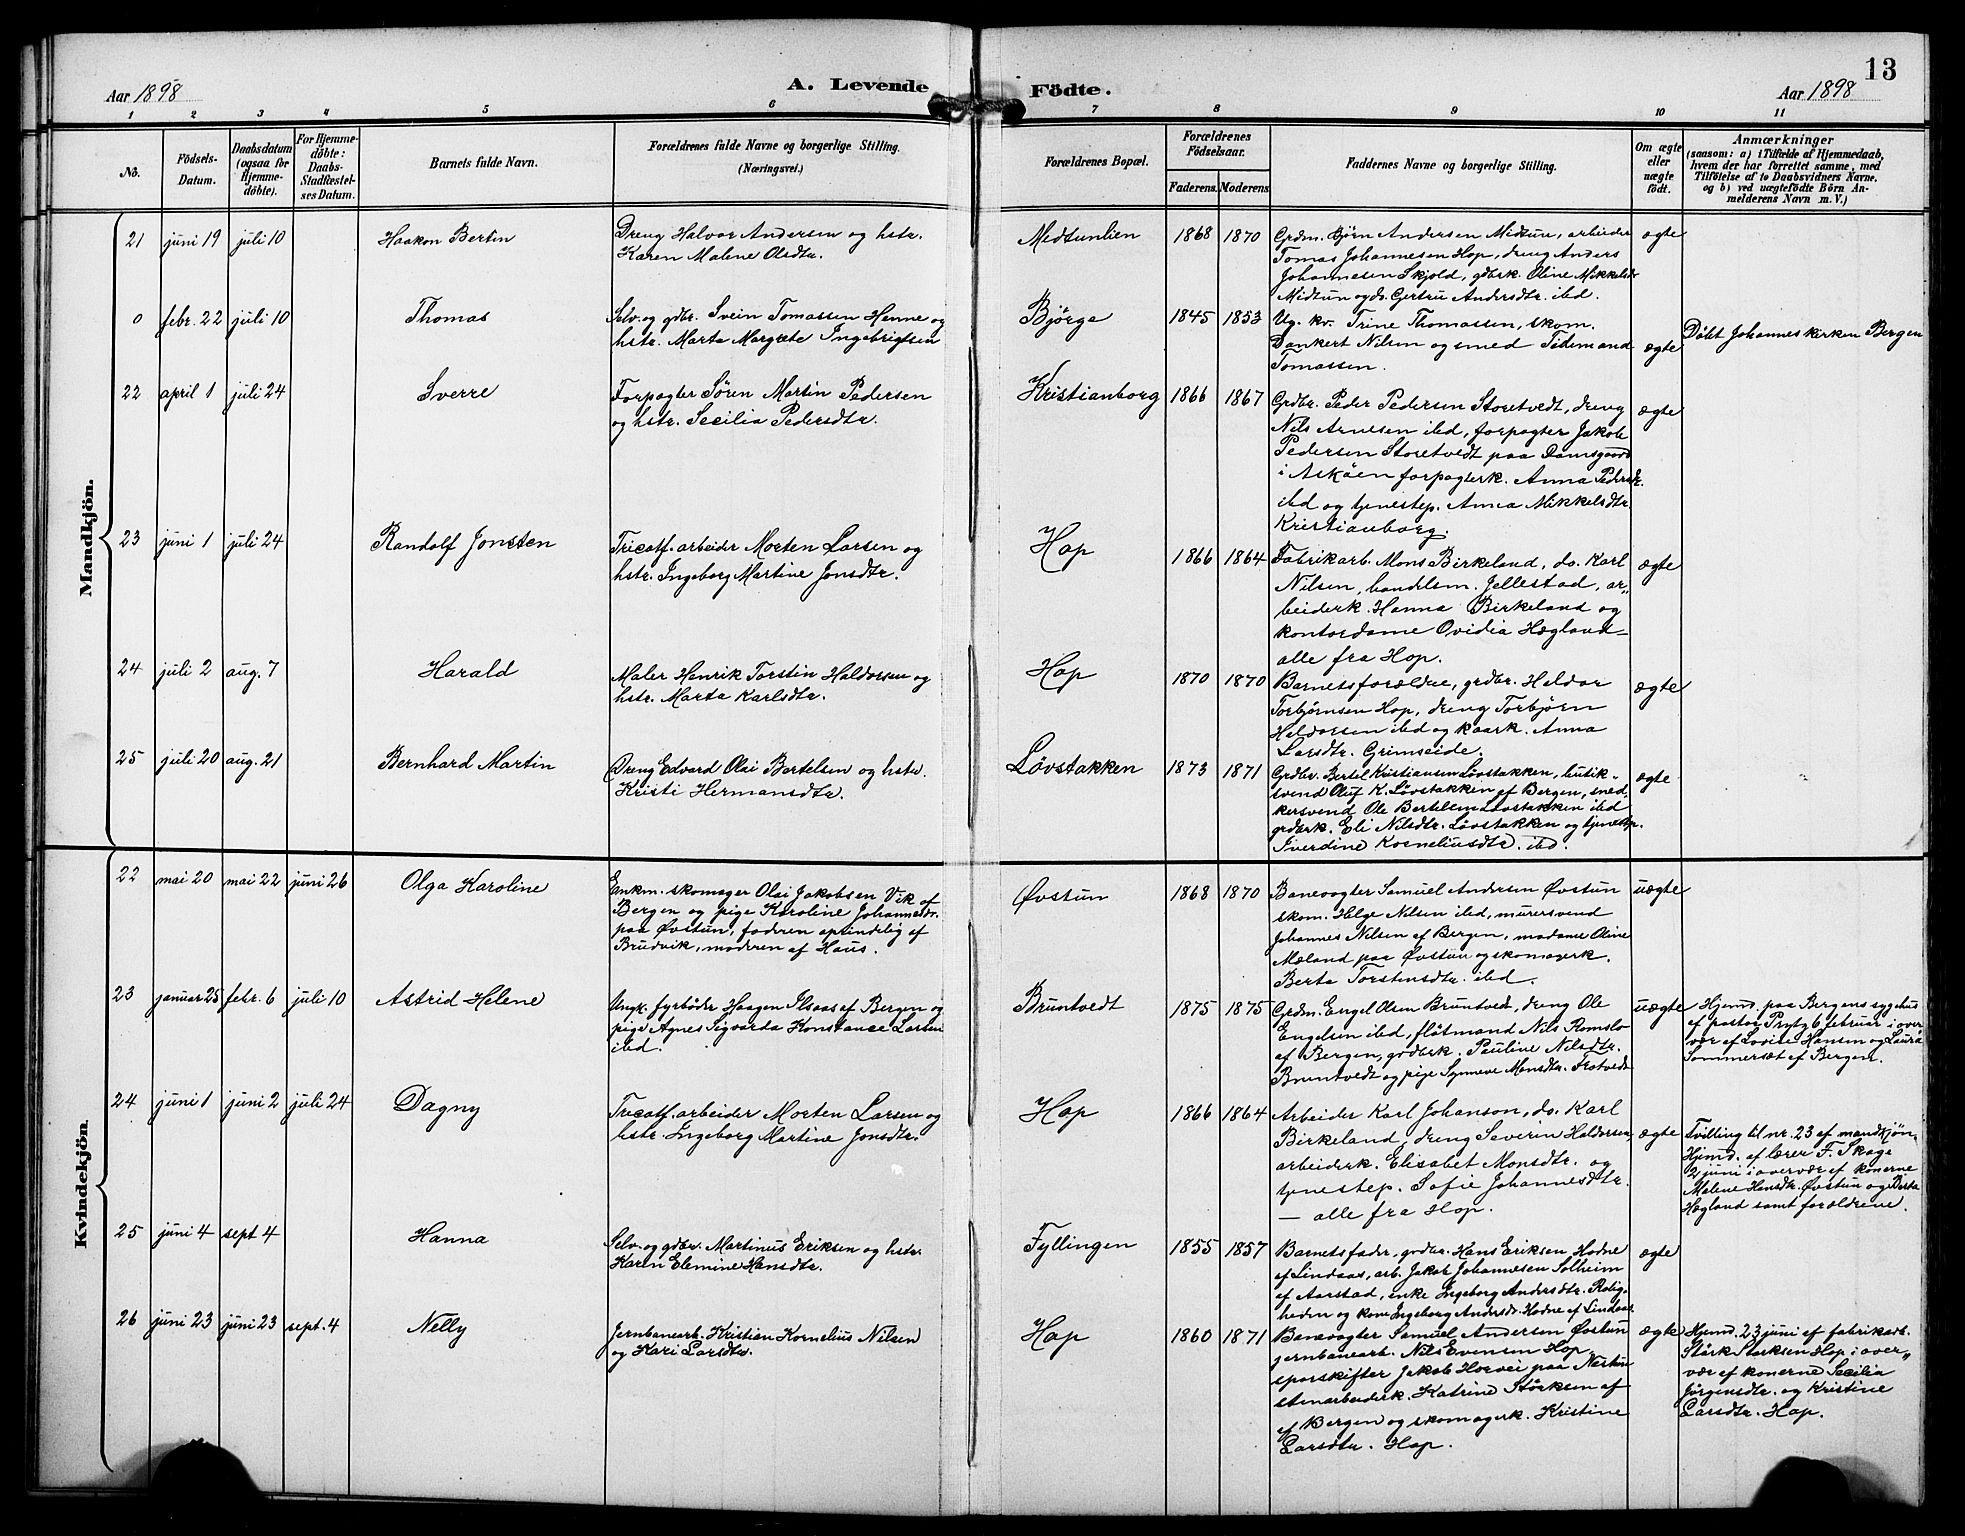 13
Aar 1898
A. Levende Födte.
Aar 1898
1 2 3 4 5 6 7 8 9 10 11
No.
Födsels-Datum.
Daabsdatum (ogsaa for Hjemme-döbte).
For Hjemme-döbte: Daabs-Stadfæstel-ses Datum.
Barnets fulde Navn.
Forældrenes fulde Navne og borgerlige Stilling.
(Næringsvei.)
Forældrenes Bopæl.
Forældrenes Födselsaar.
Faderens. Moderens.
Faddernes Navne og borgerlige Stilling.
Om ægte eller uægte födt.
Anmærkninger
(saasom: a) i Tilfælde af Hjemmedaab,
hvem der har forrettet samme, med
Tilföielse af to Daabsvidners Navne,
og b) ved uægtefödte Börn An-
melderens Navn m. V.)
Mandkjön.
21 juni 19 juli 10 Haakon Bertin
Dreng Halvor Andersen og hstr.
Karen Malene Olsdtr.
Midtunlien 1868 1870
Grdm. Bjørn Andersen Midtun, arbeider
Tomas Johannesen Hop, dreng Anders
Johannesen Skjold, gdbrk. Oline Mikkelsdr
Midtun og do. Gertru Andersdtr. ibd.
ægte
0 febr. 22 juli 10 Thomas
Selv. og gdbr. Svein Tomassen Henne og
hstr. Marta Margrete Ingebrigtsen
Björge 1845 1853
Ug. kv. Trine Thomassen, skom.
Dankert Nilsen og smed Tidemand
Tomassen.
ægte
Döbt Johanneskirken Bergen
22 april 1 juli 24 Sverre
Forpagter Sören Martin Pedersen
og hstr. Secilia Pedersdtr.
Kristianborg 1866 1867
Grdbr. Peder Pedersen Storetvedt, dreng
Nils Arnesen ibd, forpagter Jakob
Pedersen Storetvedt paa Damsgaard
i Asköen forpagterk. Anna Pedersdr.
ibd og tjenestep. Anna Mikkelsdtr.
Kristianborg.
ægte
23 juni 1 juli 24 Randolf Jonsten
Tricotf. arbeider Morten Larsen og
hstr. Ingeborg Martine Jonsdtr.
Hop 1866 1864
Fabrikarb. Mons Birkeland, do. Karl
Nilsen, handelsm. Jellestad, ar„
beiderk. Hanna Birkeland og
kontordame Ovidia Hægland =
alle fra Hop.
ægte
24 juli 2 aug. 7 Harald
Maler Henrik Torstin Haldorsen og
hstr. Marta Karlsdtr.
Hop 1870 1870
Barnets forældre, grdbr. Haldor
Torbjørnsen Hop, dreng Torbjörn
Haldorsen ibd og kaark. Anna
Larsdtr. Grimseide.
ægte
25 juli 20 aug. 21 Bernhard Martin
Dreng Edvard Olai Bertelsen og hstr.
Kristi Hermansdtr.
Løvstakken 1873 1871
Grdbr. Bertel Kristiansen Løvstakken, butik-
svend Oluf K. Løvstakken af Bergen, sned,
kersvend Ole Bertelsen Løvstakken ibd
grdbrk. Eli Nilsdtr. Løvstakken og tjenestp.
Iverdine Korneliusdtr. ibd.
ægte
Kvindekjön.
22 mai 20 mai 22 juni 26 Olga Karoline
Enkm. skomager Olai Jakobsen Vik af
Bergen og pige Karoline Johannesdr.
paa Øvstun, faderen oprindelig af
Brudvik, moderen af Haus.
Øvstun 1868 1870
Banevogter Samuel Andersen Øvstun
skom. Helge Nilsen ibd, murersvend
Johannes Nilsen af Bergen, madame Oline
Mæland paa Øvstun og skomagerk.
Berta Torstensdtr. ibd.
uægte
23 januar 25 febr. 6 juli 10 Astrid Helene
Ungk. fyrböder Haagen Ilsaas af Bergen og
pige Agnes Sigvarda Konstance Larsen
ibd.
Bruntvedt 1875 1875
Grdm. Engel Olsen Bruntvedt, dreng Ole
Engelsen ibd, flötmand Nils Romslo
af Bergen, grdbrk. Pauline Nilsdtr.
Bruntvedt og pige Synneve Monsdtr. Trotvedt
uægte
Hjemd. paa Bergens sygehus
af pastor Prytz 6 februar i over„
vær af Lovise Hansen og Laura
Sommersæt af Bergen.
24 juni 1 juni 2 juli 24 Dagny
Tricotf. arbeider Morten Larsen og
hstr. Ingeborg Martine Jonsdtr.
Hop 1866 1864
Arbeider Karl Johanson, do. Karl
Birkeland, dreng Severin Haldorsen,
arbeiderk. Elisabet Monsdtr. og
tjenestep. Sofie Johannesdtr.
— alle fra Hop.
ægte
Tvilling til nr. 23 af mandkjön.
Hjemd. af lærer F. Skage
2 juni i overvær af konerne
Malene Hansdtr. Øvstun og Berta
Hægland samt forældrene.
25 juni 4 sept 4 Hanna
Selv. og gdbr. Martinus Eriksen og hstr.
Karen Elemine Hansdtr.
Fyllingen 1855 1857
Barnets fader, grdbr. Hans Eriksen Hodne
af Lindaas, arb. Jakob Johannesen Solheim
af Aarstad, enke Ingeborg Andersdtr. Rolig-
heden og kone Ingeborg Andersdr. Hodne af Lindaas.
ægte
26 juni 23 juni 23 sept. 4 Nelly
Jernbanearb. Kristian Kornelius Nilsen
og Kari Larsdtr.
Hop 1860 1871
Banevogter Samuel Andersen Øvstun
jernbanearb. Nils Evensen Hop,
sporskifter Jakob Horvei paa Nestun
stenarbeiderk. Katrine Störksen af
af Bergen og skomagerk. Kristine
Larsdtr. Hop.
ægte
Hjemd. 23 juni af fabrikarb.
Störk Störksen Hop i over„
vær af konerne Secilia
Jörgensdtr. og Kristine
Larsdtr. Hop.